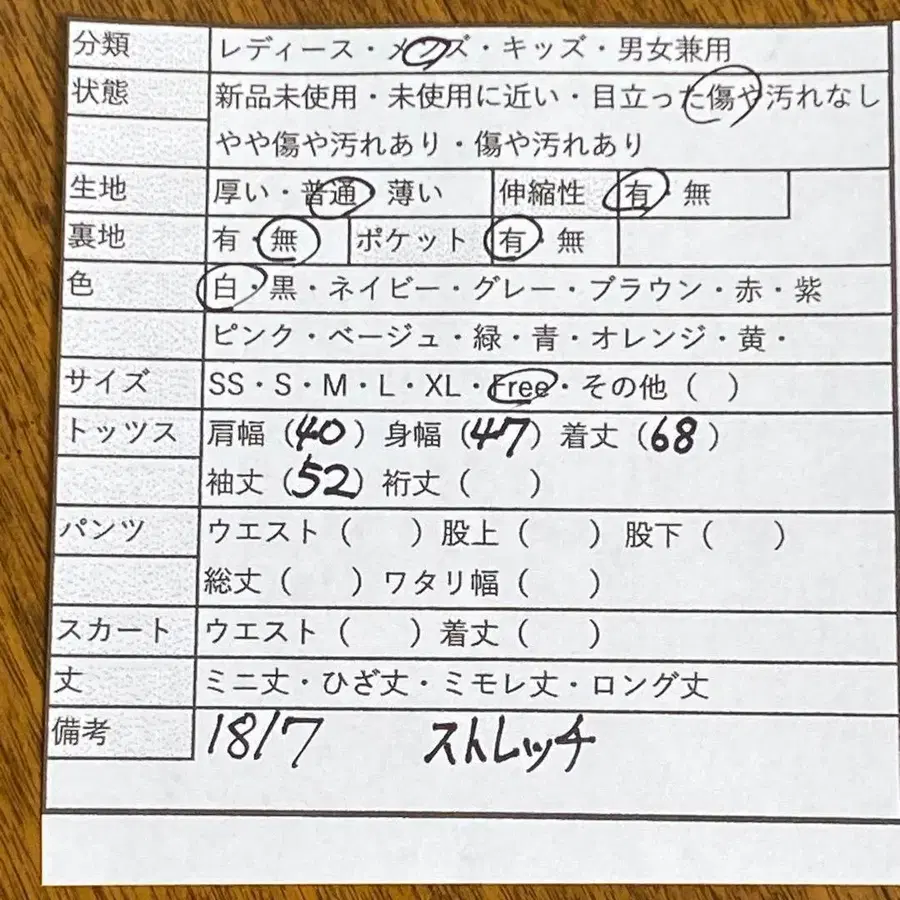 分類 レディース・メンズ・キッズ・男女兼用
状態 新品未使用・未使用に近い・目立った傷や汚れなし
やや傷や汚れあり・傷や汚れあり
生地 厚い・普通・薄い 伸縮性 有・無
裏地 有・無 ポケット 有・無
色 白・黒・ネイビー・グレー・ブラウン・赤・紫
ピンク・ベージュ・緑・青・オレンジ・黄・
サイズ SS・S・M・L・XL・Free・その他（ ）
トッツス 肩幅（40）身幅（47）着丈（68）
袖丈（52）裄丈（ ）
パンツ ウエスト（ ）股上（ ）股下（ ）
総丈（ ）ワタリ幅（ ）
スカート ウエスト（ ）着丈（ ）
丈 ミニ丈・ひざ丈・ミモレ丈・ロング丈
備考 1817 ストレッチ